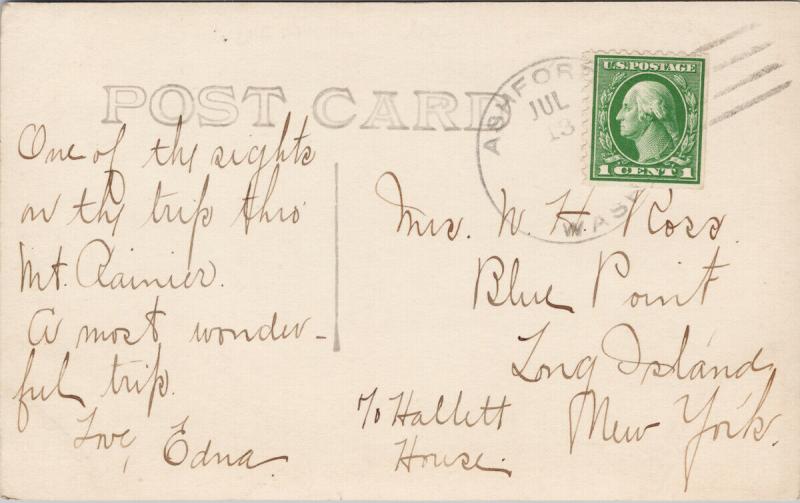 POST CARD
ASHFORD
JUL
13
WASH
U.S. POSTAGE
1 CENT 1
One of the sights
on the trip thro
Mt. Rainier.
A most wonder-
ful trip.
Love, Edna.
Mrs. W. H. Ross.
Blue Point
Long Island,
New York.
c/o Hallett
House.